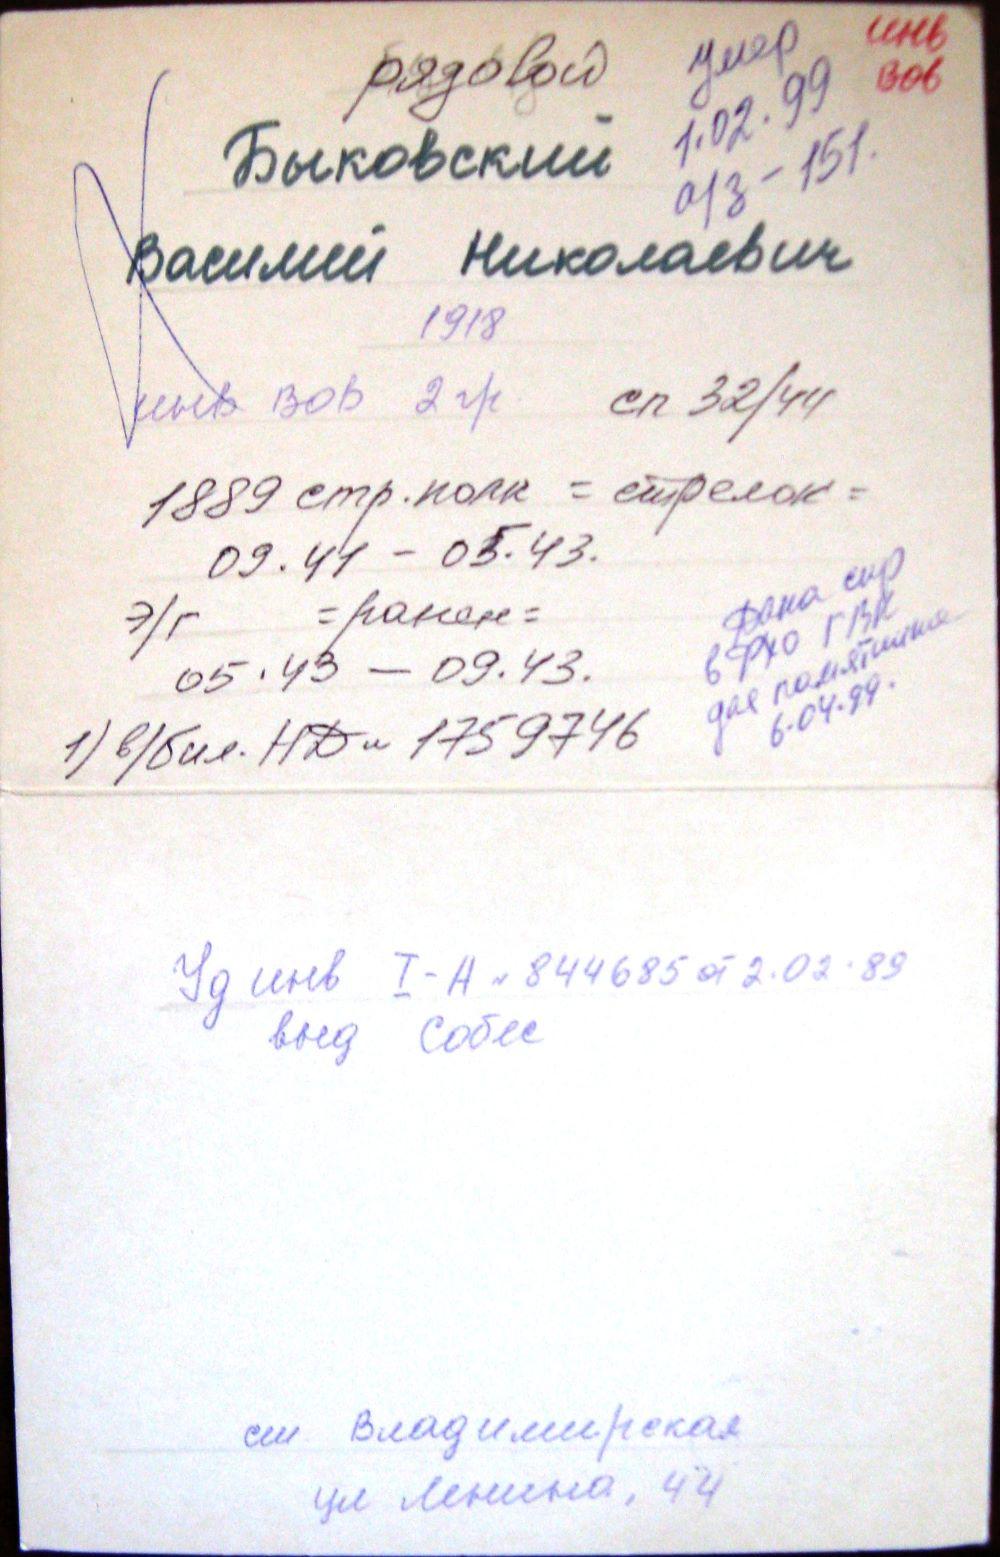 рядовой
инв
ВОВ
умер
1.02.99
а/з - 151.
Быковский
Василий Николаевич
1918
инв ВОВ 2 гр.
сп 32/44
1889 стр. полк = стрелок =
09.41 - 05.43.
э/г = ранен =
05.43 - 09.43.
1) в/бил. НД № 1759746
Дана спр
в ФХО ГВК
для памятника
6.04.99.
Уд инв I-А № 844685 от 2.02.89
выд Собес
ст. Владимирская
ул Ленина, 44